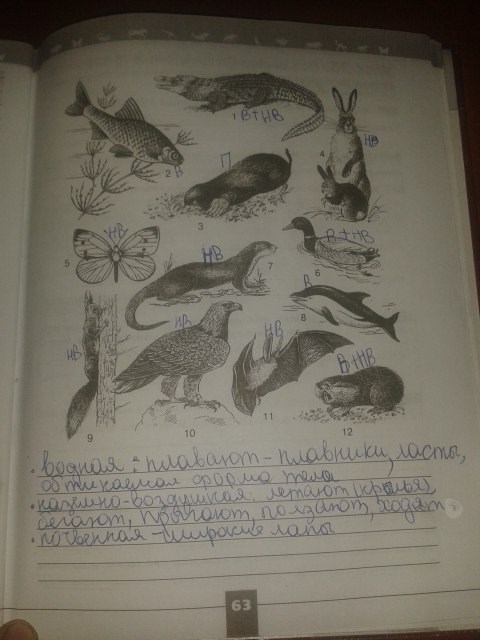 1 В+НВ
2 В
П
3
4 НВ
5 НВ
В+НВ
6
НВ
7
В
8
НВ
9
НВ
10
НВ
11
В+НВ
12
• водная: плавают - плавники, ласты,
обтикаемая форма тела
• наземно-воздушная: летают (крылья),
бегают, прыгают, ползают, ходят
• почвенная - широкие лапы
63